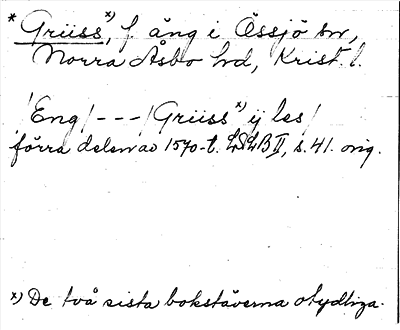 * Grüss *), f. äng i Össjö sn,
Norra Åsbo hd, Krist. l.
/Eng/ - - - /Grüss *) ÿ les/
förra delen av 1570-t. LSLB II, s. 41. orig.
*) De två sista bokstäverna otydliga.